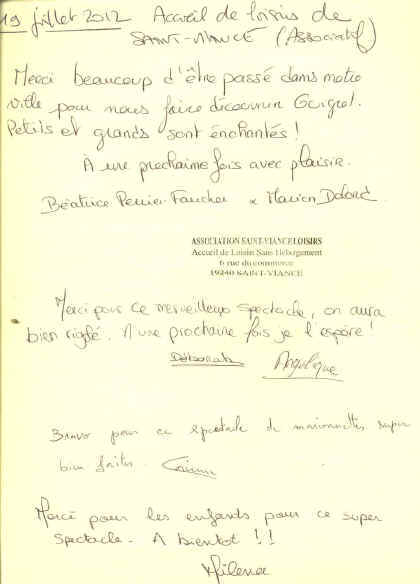 19 juillet 2012 Accueil de loisirs de
SAINT-VIANCE (Associatif)
Merci beaucoup d'être passé dans notre
ville pour nous faire découvrir Guignol.
Petits et grands sont enchantés !
A une prochaine fois avec plaisir.
Béatrice Perrier-Faucher & Marion
ASSOCIATION SAINT-VIANCE LOISIRS
Accueil de Loisirs Sans Hébergement
6 rue du commerce
19240 SAINT-VIANCE
Merci pour ce merveilleux spectacle, on aura
bien rigolé. A une prochaine fois je l'espère !
Déborah Angélique
Bravo pour ce spectacle de marionnettes super
bien faites.
Merci pour les enfants pour ce super
spectacle. A bientot !!
Hélène